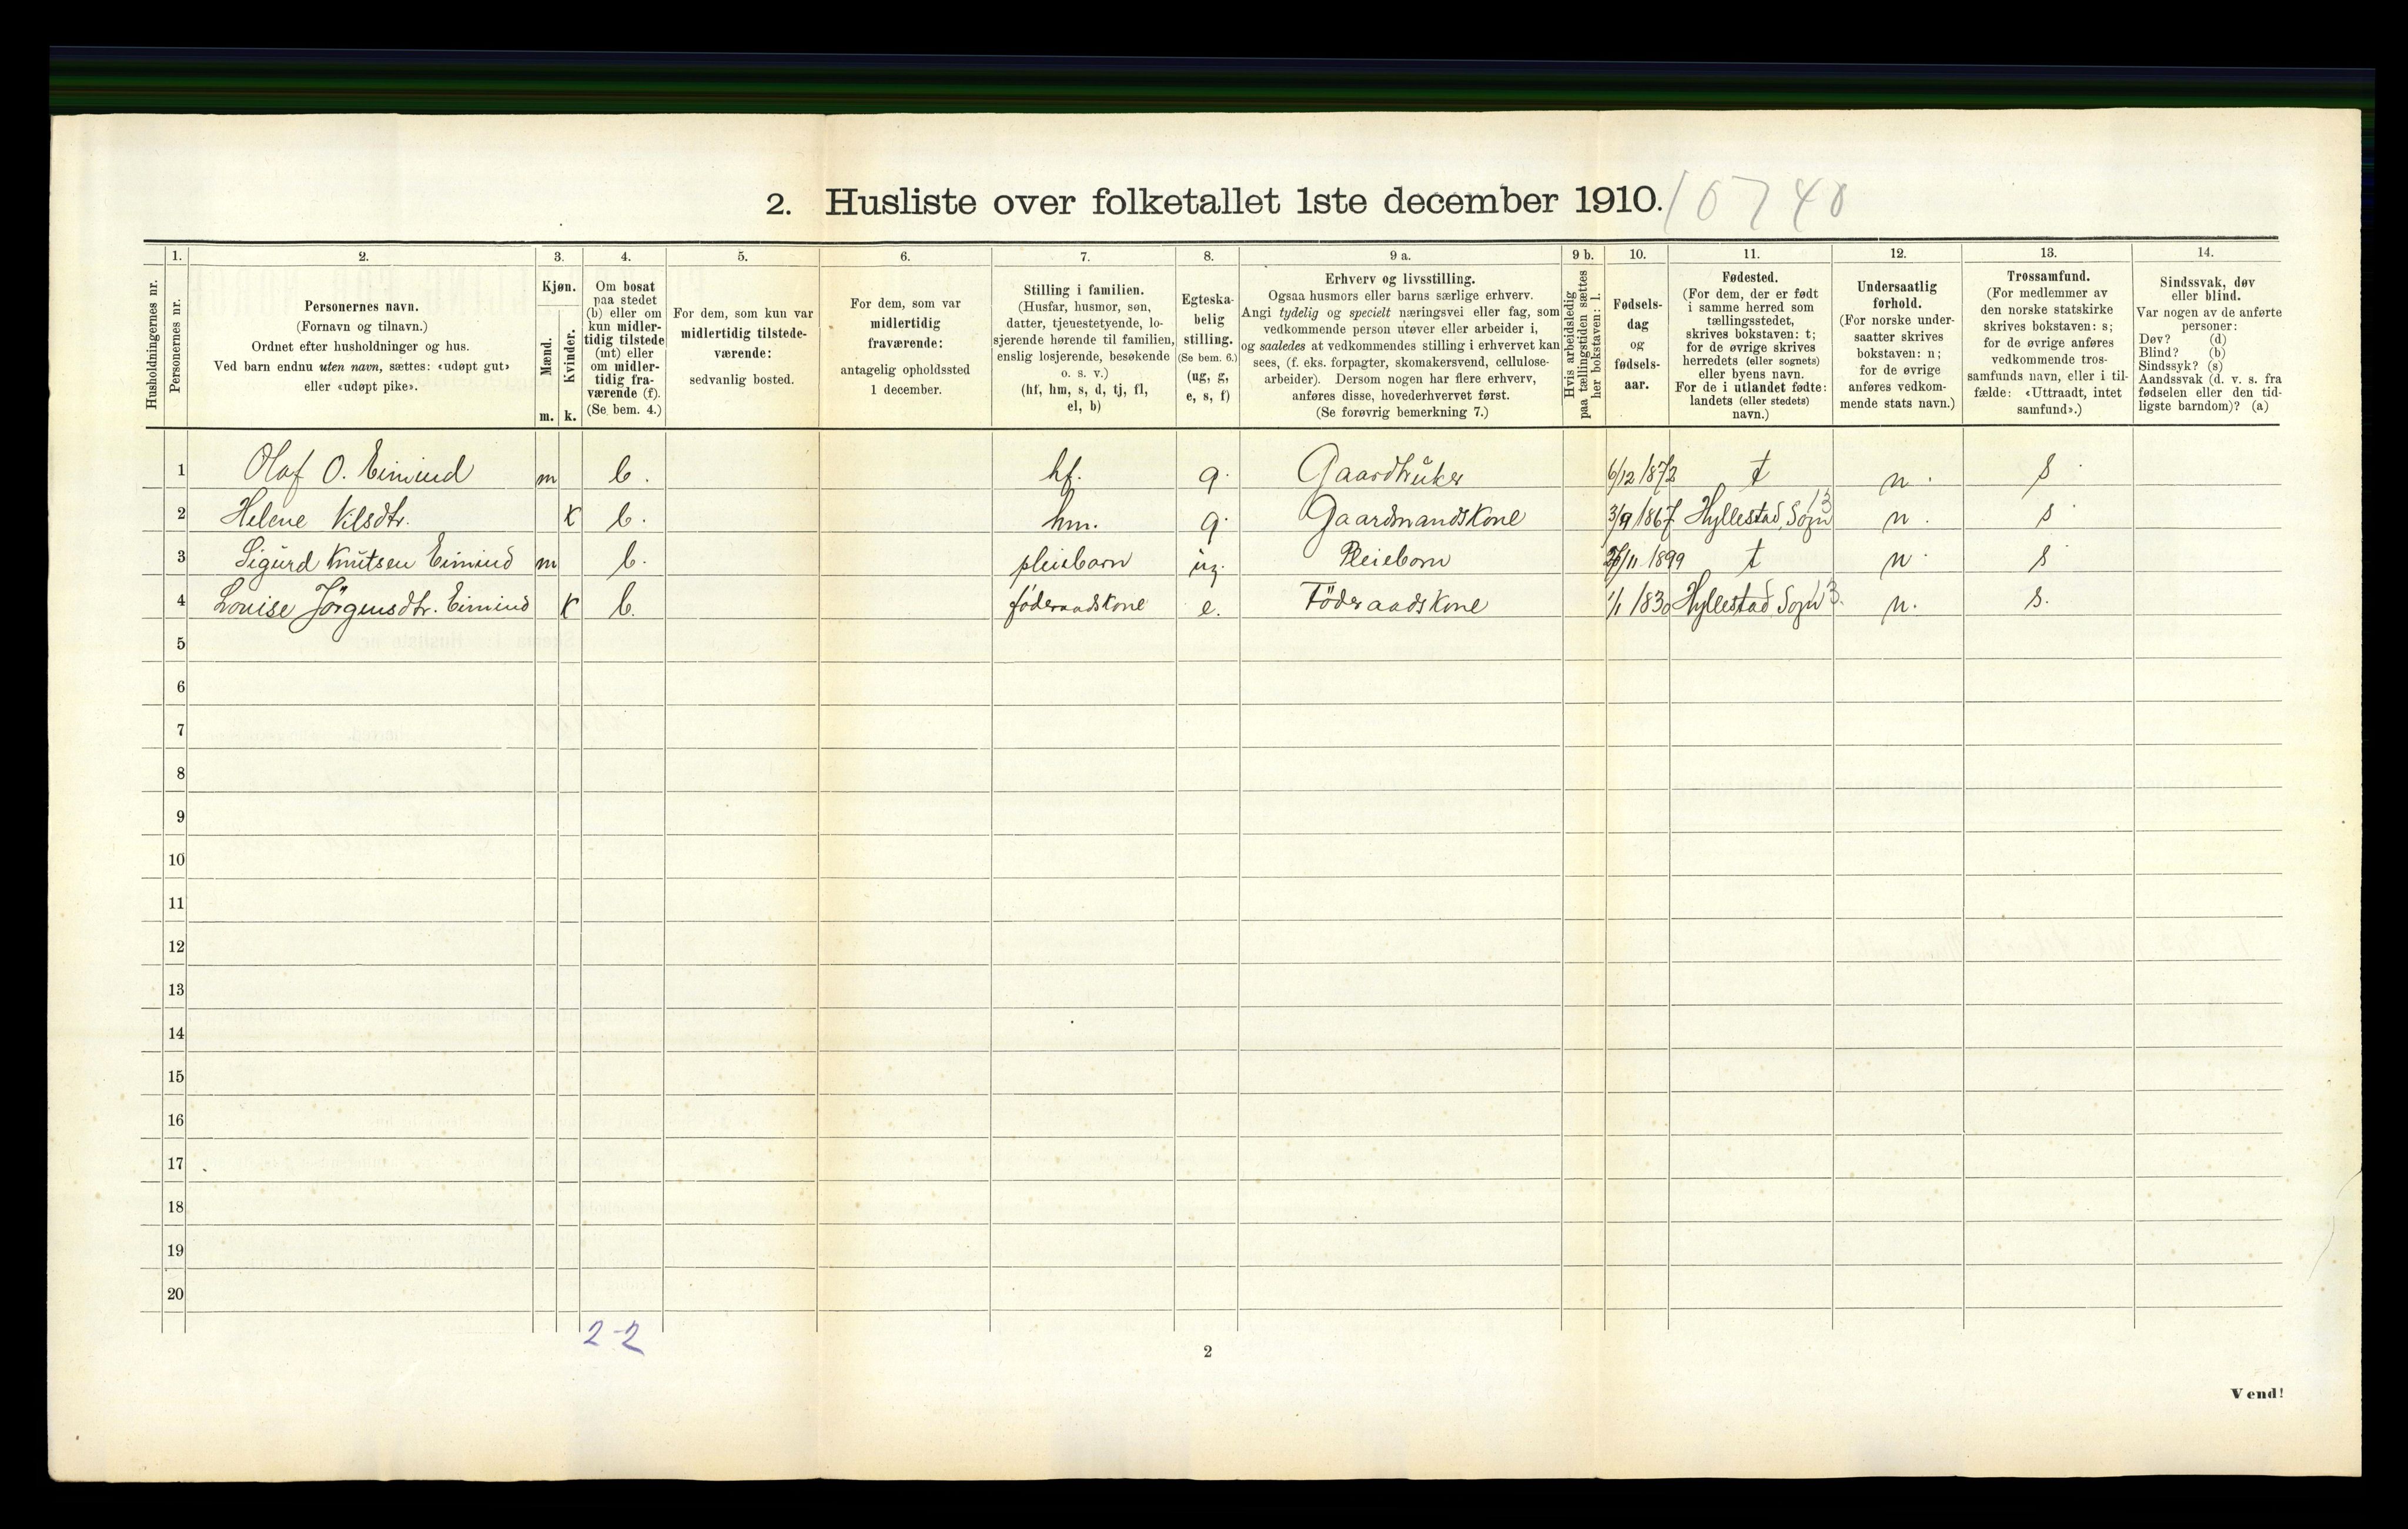 2. Husliste over folketallet 1ste december 1910. 10740
1. 2. 3. 4. 5. 6. 7. 8. 9 a. 9 b. 10. 11. 12. 13. 14.
Husholdningernes nr.
Personernes nr.
Personernes navn.
(Fornavn og tilnavn.)
Ordnet efter husholdninger og hus.
Ved barn endnu uten navn, sættes: «udøpt gut»
eller «udøpt pike».
Kjøn.
Mænd.
Kvinder.
m. k.
Om bosat
paa stedet
(b) eller om
kun midler-
tidig tilstede
(mt) eller
om midler-
tidig fra-
værende (f).
(Se bem. 4.)
For dem, som kun var
midlertidig tilstede-
værende:
sedvanlig bosted.
For dem, som var
midlertidig
fraværende:
antagelig opholdssted
1 december.
Stilling i familien.
(Husfar, husmor, søn,
datter, tjenestetyende, lo-
sjerende hørende til familien,
enslig losjerende, besøkende
o. s. v.)
(hf, hm, s, d, tj, fl,
el, b)
Egteska-
belig
stilling.
(Se bem. 6.)
(ug, g,
e, s, f)
Erhverv og livsstilling.
Ogsaa husmors eller barns særlige erhverv.
Angi tydelig og specielt næringsvei eller fag, som
vedkommende person utøver eller arbeider i,
og saaledes at vedkommendes stilling i erhvervet kan
sees, (f. eks. forpagter, skomakersvend, cellulose-
arbeider). Dersom nogen har flere erhverv,
anføres disse, hovederhvervet først.
(Se forøvrig bemerkning 7.)
Hvis arbeidsledig
paa tællingstiden sættes
her bokstaven: l.
Fødsels-
dag
og
fødsels-
aar.
Fødested.
(For dem, der er født
i samme herred som
tællingsstedet,
skrives bokstaven: t;
for de øvrige skrives
herredets (eller sognets)
eller byens navn.
For de i utlandet fødte:
landets (eller stedets)
navn.)
Undersaatlig
forhold.
(For norske under-
saatter skrives
bokstaven: n;
for de øvrige
anføres vedkom-
mende stats navn.)
Trossamfund.
(For medlemmer av
den norske statskirke
skrives bokstaven: s;
for de øvrige anføres
vedkommende tros-
samfunds navn, eller i til-
fælde: «Uttraadt, intet
samfund».)
Sindssvak, døv
eller blind.
Var nogen av de anførte
personer:
Døv? (d)
Blind? (b)
Sindssyk? (s)
Aandssvak (d. v. s. fra
fødselen eller den tid-
ligste barndom)? (a)
1 Olaf O. Eimind m b. hf. g. Gaardbruker 6/12 1872 t n. s
2 Helene Nilsdtr. K b. hm. g. Gaardmandskone 3/9 1867 Hyllestad, Sogn 13 n. s
3 Sigurd Knutsen Eimind m b. pleiebarn ug. Pleiebarn /11 1899 t n s
4 Louise Jörgensdtr. Eimind K b. föderaadskone e. Föderaadskone 1/1 1830 Hyllestad Sogn 13. n. s.
5
6
7
8
9
10
11
12
13
14
15
16
17
18
19
20
2-2
2
Vend!